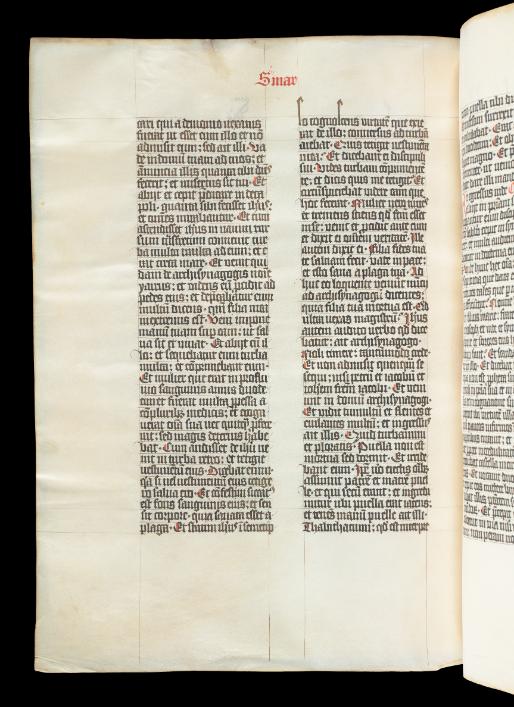 Smar
cari qui a demonio uexatus
fuerat ut esset cum illo et nō
admisit eum; sed ait illi. Va
de in domū tuam ad tuos; et
annūcia illis quanta tibi dn̄s
fecerit; et misertus sit tui. Et
abijt et cepit predicare in deca
poli. quanta sibi fecisset ihūs;
et omnes mirabantur. Et cum
ascendisset ihūs in nauim rur
sum trās fretum; conuenit tur
ba multa ad eum; et e
rat circa mare. Et uenit qui
dam de archisynagogis noīe
yairus; et uidens eū procidit ad
pedes eius; et deprecabatur eum
multū dicens. qm̄ filia mea
in extremis est. Veni impone
manū tuam sup eam; ut sal
ua sit et uiuat. Et abijt cū il
lo; et sequebatur eum turba
multa; et cōprimebant eum.
Et mulier que erat in proflu
uio sanguinis annis duode
cim; et fuerat multa ppessa a
cōpluribz medicis; et eroga
uerat omīa sua nec quicq̄ pfece
rat; sed magis deterius habe
bat. Cum audisset de ihū ue
nit in turba retro; et tetigit
uestimētū eius. Dicebat enim
qa si uel uestimētū eius tetige
ro salua ero. Et cōfestim siccat̄
est fons sanguinis eius; et sen
sit corpore. quia sanata esset a
plaga. Et statim ihūs ī semetip
so cognoscens uirtutē que exie
rat de illo; conuersus ad turbā
aiebat. Quis tetigit uestimēta
mea. Et dicebant ei discipuli
sui. Vides turbam cōprimentē
te; et dicis quis me tetigit. Et
circūspiciebat uidere eam que
hoc fecerat. Mulier uero timēs
et tremens sciens qd factū esset
in se; uenit et procidit ante eum
et dixit ei omnem ueritatē. Ille
autem dixit ei. Filia fides tua
te saluam fecit. uade in pace;
et esto sana a plaga tua. Ad
huc eo loquente ueniūt nūcij
ad archisynagogū dicentes;
quia filia tua mortua est. Qd
ultra uexas magistrū. Ihūs
autem audito uerbo qd dice
batur; ait archisynagogo.
Noli timere; tantūmodo crede.
Et non admisit quemq̄ se
sequi; nisi petrū et iacobū et
iohēm frem̄ iacobi. Et ueni
unt in domū archisynagogi.
Et uidit tumultū et flentes et
eiulantes multū; et ingressus
ait illis. Quid turbamini
et ploratis. Puella non est
mortua sed dormit. Et irride
bant eum. Ipē uo eiectis oībz
assumit patrē et matrē puel
le. et qui secū erant; et ingredi
untur ubi puella erat iacens;
et tenēs manū puelle ait illi.
Thabithacum; qd est interpre